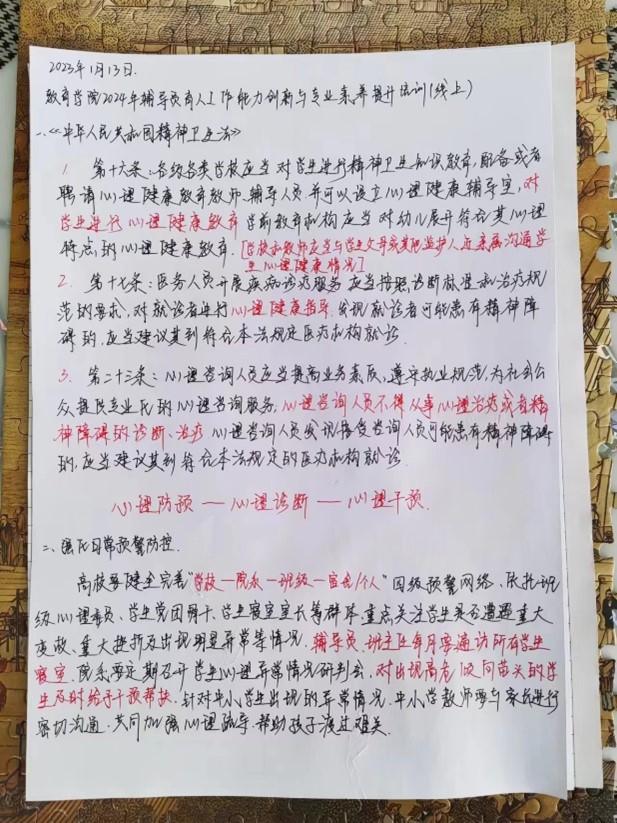 2023年1月13日.
教育学院2024年辅导员育人工作能力创新与专业素养提升培训(线上)
一、《中华人民共和国精神卫生法》
1. 第十六条:各级各类学校应当对学生进行精神卫生知识教育,配备或者
聘请心理健康教育教师、辅导人员.并可以设立心理健康辅导室,对
学生进行心理健康教育.学前教育机构应当对幼儿展开符合其心理
特点的心理健康教育.[学校和教师应当与学生父母或其他监护人、近亲属沟通学
生心理健康情况]
2. 第十七条:医务人员开展疾病诊疗服务,应当按照诊断标准和治疗规
范的要求,对就诊者进行心理健康指导.发现就诊者可能患有精神障
碍的,应当建议其到符合本法规定医疗机构就诊.
3. 第二十三条:心理咨询人员应当提高业务素质,遵守执业规范,为社会公
众提供专业化的心理咨询服务,心理咨询人员不得从事心理治疗或者精
神障碍的诊断、治疗.心理咨询人员发现接受咨询人员可能患有精神障碍
的,应当建议其到符合本法规定的医疗机构就诊.
心理防预—心理诊断—心理干预.
二、强化日常预警防控.
高校要健全完善"学校—院系—班级—宿舍/个人"四级预警网络、依托班
级心理委员、学生党团骨干、学生寝室室长等群体,重点关注学生是否遭遇重大
变故、重大挫折及出现明显异常等情况.辅导员、班主任每月要遍访所有学生
寝室.院系要定期召开学生心理异常情况研判会,对出现高危倾向苗头的学
生及时给予干预帮扶.针对中小学生出现的异常情况.中小学教师要与家长进行
密切沟通.共同加强心理疏导.帮助孩子渡过难关.